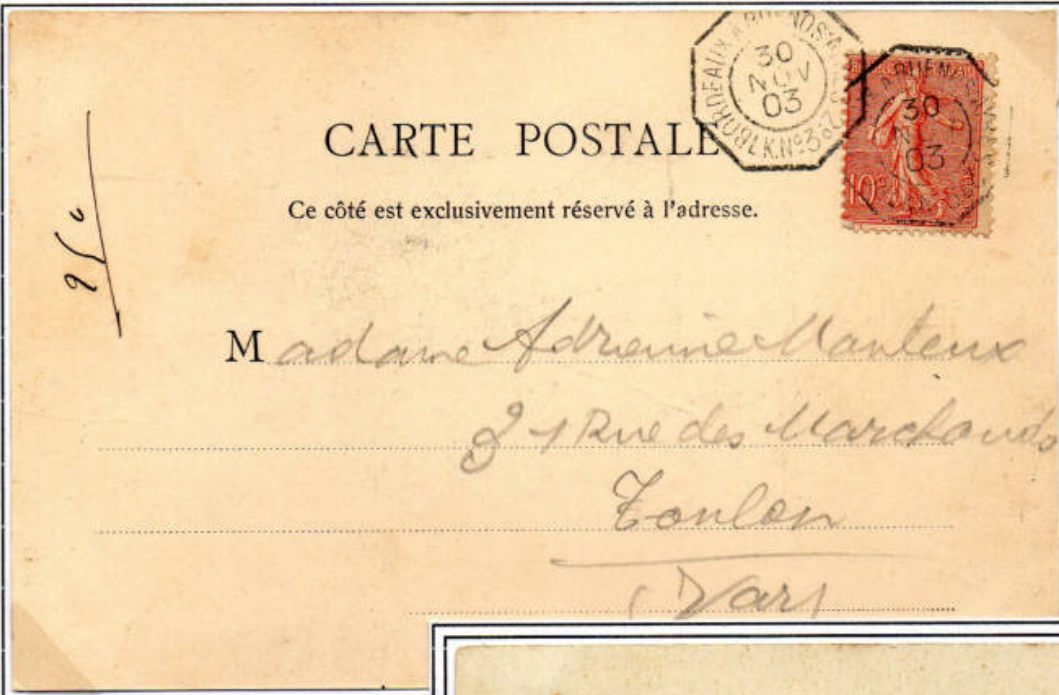 BORDEAUX A BUENOS-AYRES 2º
L.K.Nº3
30
NOV
03
30
03
10
CARTE POSTALE
Ce côté est exclusivement réservé à l'adresse.
Madame Adrienne Manteux
21 Rue des Marchands
Toulon
(Var)